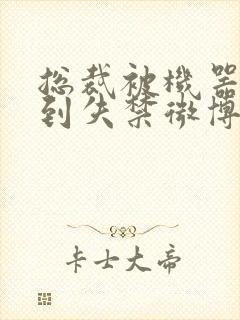 总裁被機器
到失禁微博
卡士大帝